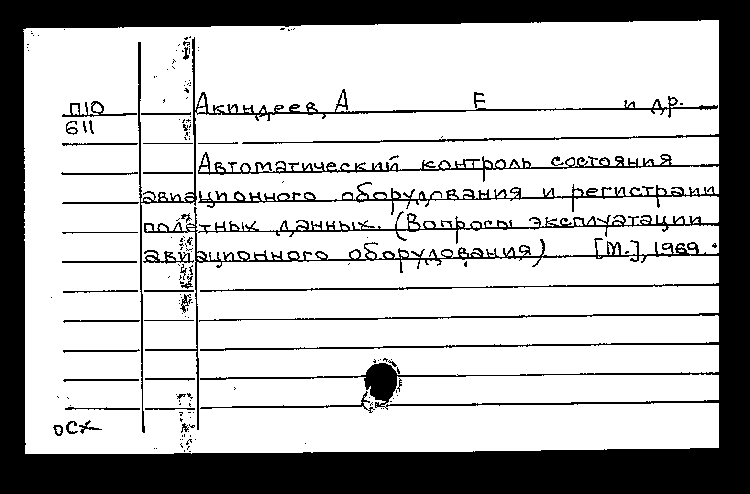 П10 Акиндеев, А Е и др.
611
Автоматический контроль состояния
авиационного оборудования и регистрации
полетных данных. (Вопросы эксплуатации
авиационного оборудования) [М.], 1969.
осх